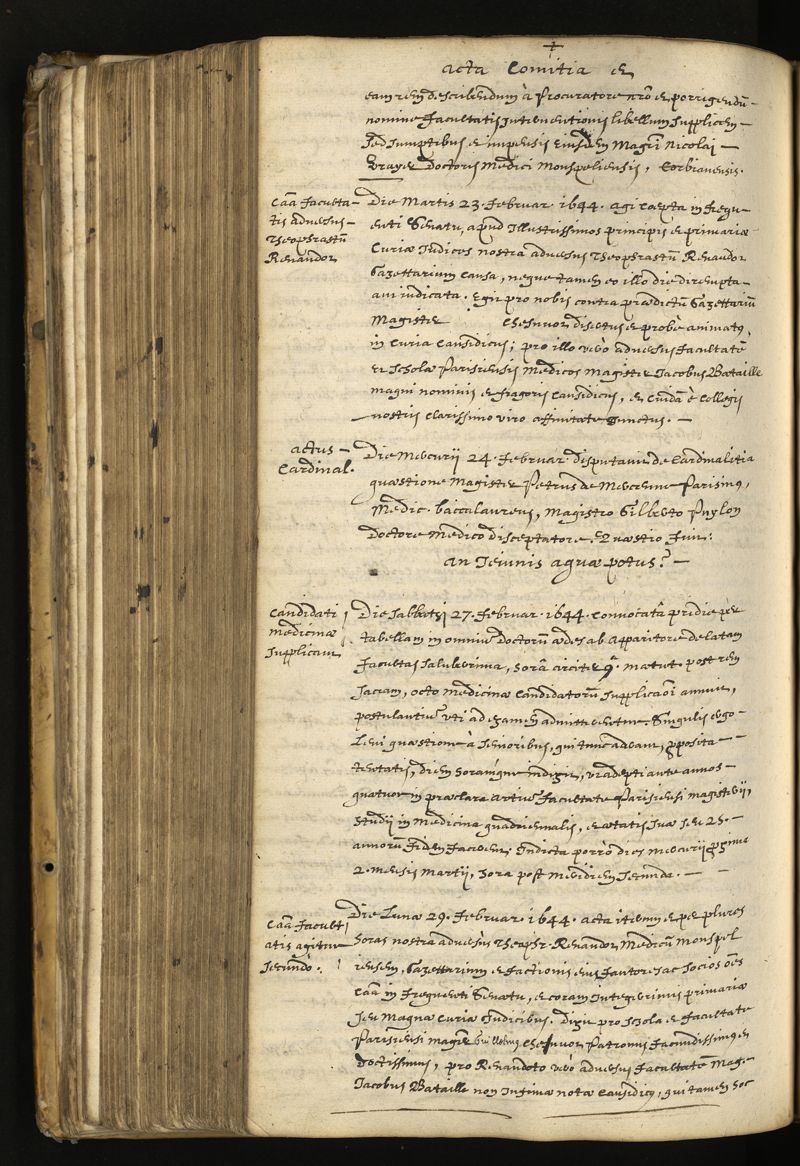 +
Acta Comitia et
eam rem describendum à Procuratore nro et porrigendū
nomine Facultatis Interventionis libellum supplicem
sed sumptibus et impensis eiusdem Magri Nicolai
Brayer doctoris Medici Monspeliensis, Corbianensis.
Caa Facultatis
tis adversus
Theophrastū
Renaudot
Die Martis 23. Februar. 1644. agi coepta in frequenti
enti Senatu, apud Illustrissimos principis et primariae
Curiae Iudices nostra adversus Theophrastū Renaudot
Gazettarium causa, neque tamen eo illo die dirempta
aut iudicata. Egit pro nobis contra praedictū Gazettariū
Magister Chenuot disertus et probè animatus
in Curia Causidicus; pro illo verò adversus facultatē
et Scholae Parisiensis Medicos Magister Iacobus Bataille
magni nominis et fragoris Causidicus, et cuidā è Collegis
nostris clarissimo viro affinitate iunctus.
Actus
Cardinal.
Die Mercurii 24. Februar. disputavit de Cardinalitia
quaestione Magister Petrus de Mercenne Parisinus,
Medic. baccalaureus, Magistro Gilberto Puylon
Doctore Medico disceptatore. Quaestio fuit:
An Ieiunis aquae potus?
Candidati
medicinae
supplicant
Die Sabbathi 27. Februar. 1644. Convocatâ pridie per
tabellam in omniū Doctorū aedes ab Apparitore delatam
Facultas saluberrima, horâ circiter 9â. matut. post rem
sacram, octo medicinae Candidatorū supplicaōi annuit,
postulantiū uti ad examen admitterentur. Singulis ergo
levi quaestione à senioribus, qui tunc aderant, pposita
tentatis, diem horamque indixit, ut adepti ante annos
quatuor in praeclara Artiū Facultate Parisiensi magisterii,
studii in medicina quadriennalis, et aetatis suae seu 25.
annorū fidem facerent. Indicta porrò dies Mercurii pxime
2. mensis Martii, hora post meridiem secunda.
Caa Facult
atis agitur
secundò.
Die Lunae 29. Februar. 1644. acta iterum et per plures
horas nostra adversus Theophr. Renaudot Medicū Monspel
iensem, Gazettarium et factionis eius fautores ac socios oēs
Caa in frequenti Senatu, et coram integerrimis primariae
seu Magnae Curiae Iudicibus. Dixit pro Schola et facultate
Parisiensi Magr Chenuot Patronus facundissimus et
doctissimus, pro Renaudoto verò adversus facultatē Mag.
Iacobus Bataille non infimae notae Causidicus, qui tamen hoc